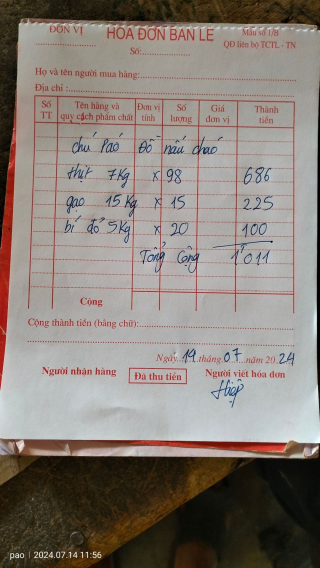 ĐƠN VỊ
HÓA ĐƠN BÁN LẺ
Mẫu số 1/8
QĐ liên bộ TCTL - TN
Số:
Họ và tên người mua hàng:
Địa chỉ:
Số TT Tên hàng và quy cách phẩm chất Đơn vị tính Số lượng Giá đơn vị Thành tiền
chú Páó Đồ nấu cháo
thịt 7Kg x 98 686
gạo 15Kg x 15 225
bí đỏ 5Kg x 20 100
Tổng Cộng 1'011
Cộng
Cộng thành tiền (bằng chữ):
Ngày 19 tháng 07 năm 2024
Người nhận hàng Đã thu tiền Người viết hóa đơn
Hiệp
pao | 2024.07.14 11:56